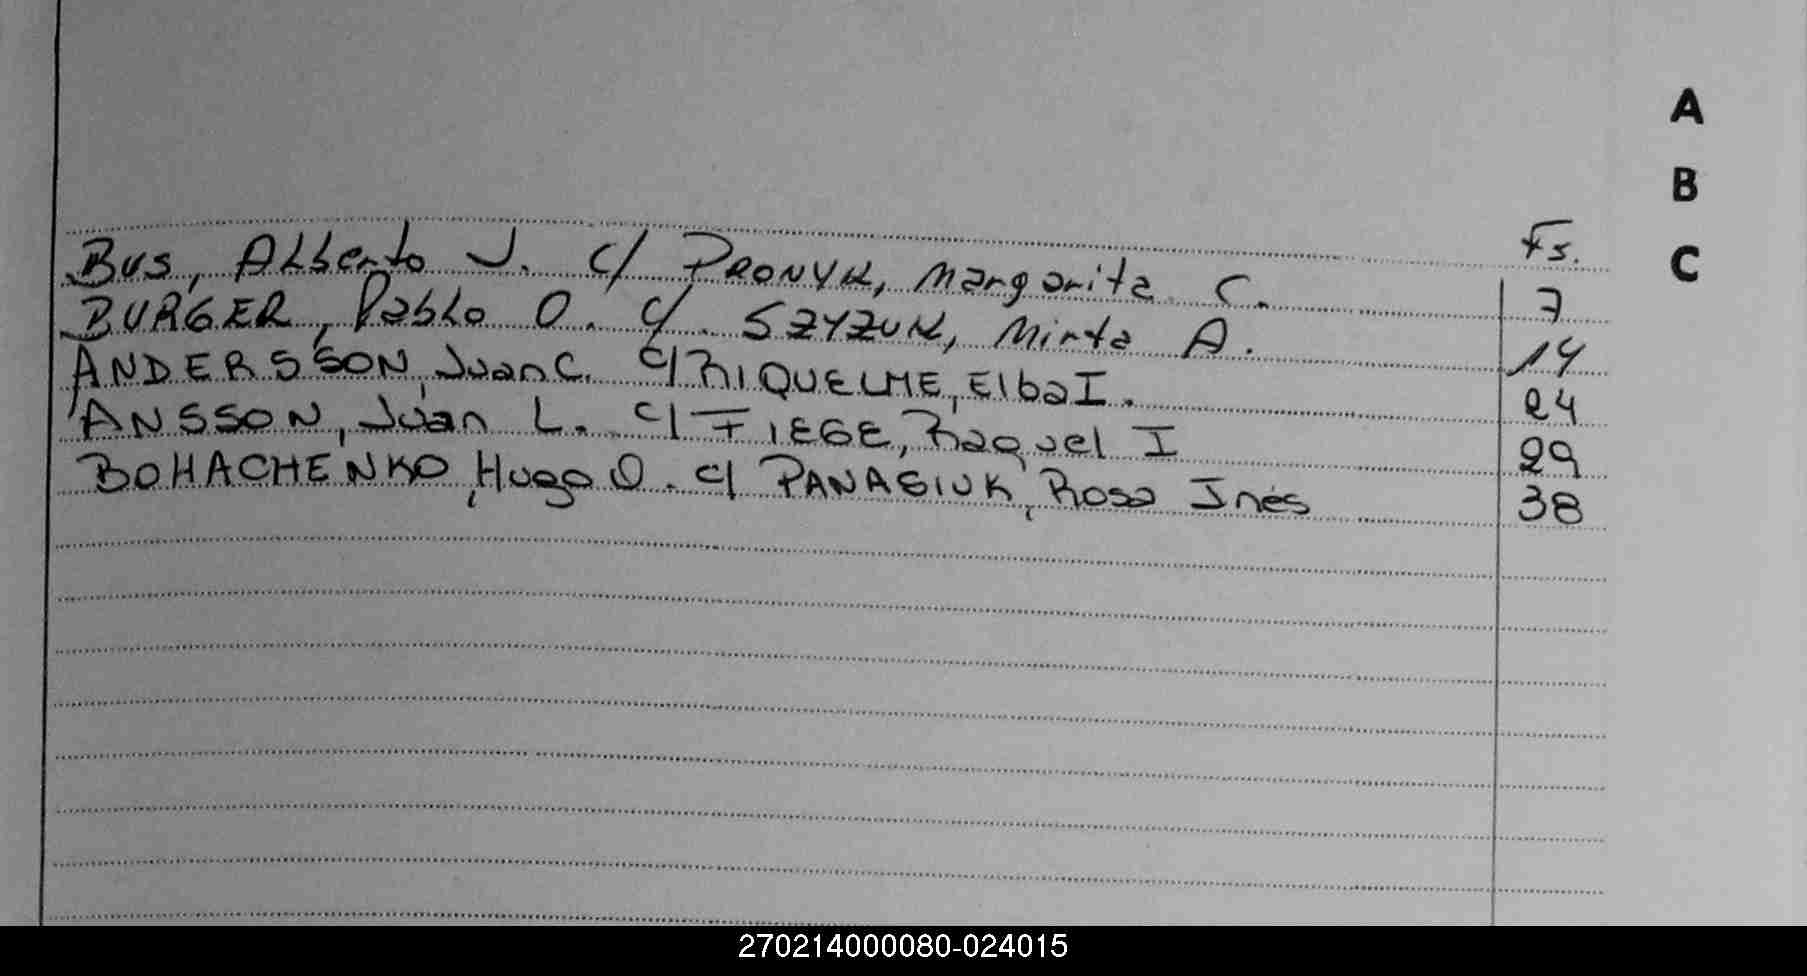 A
B
C
Fs.
Bus, Alberto J. c/ PRONYK, Margarita C. 7
BURGER, Pablo O. c/. SZYZUK, Mirta A. 14
ANDERSSON, Juan C. c/ RIQUELME, Elba I. 24
ANSSON, Juan L. c/ FIEGE, Raquel I 29
BOHACHENKO, Hugo O. c/ PANASIUK, Rosa Inés 38
270214000080-024015